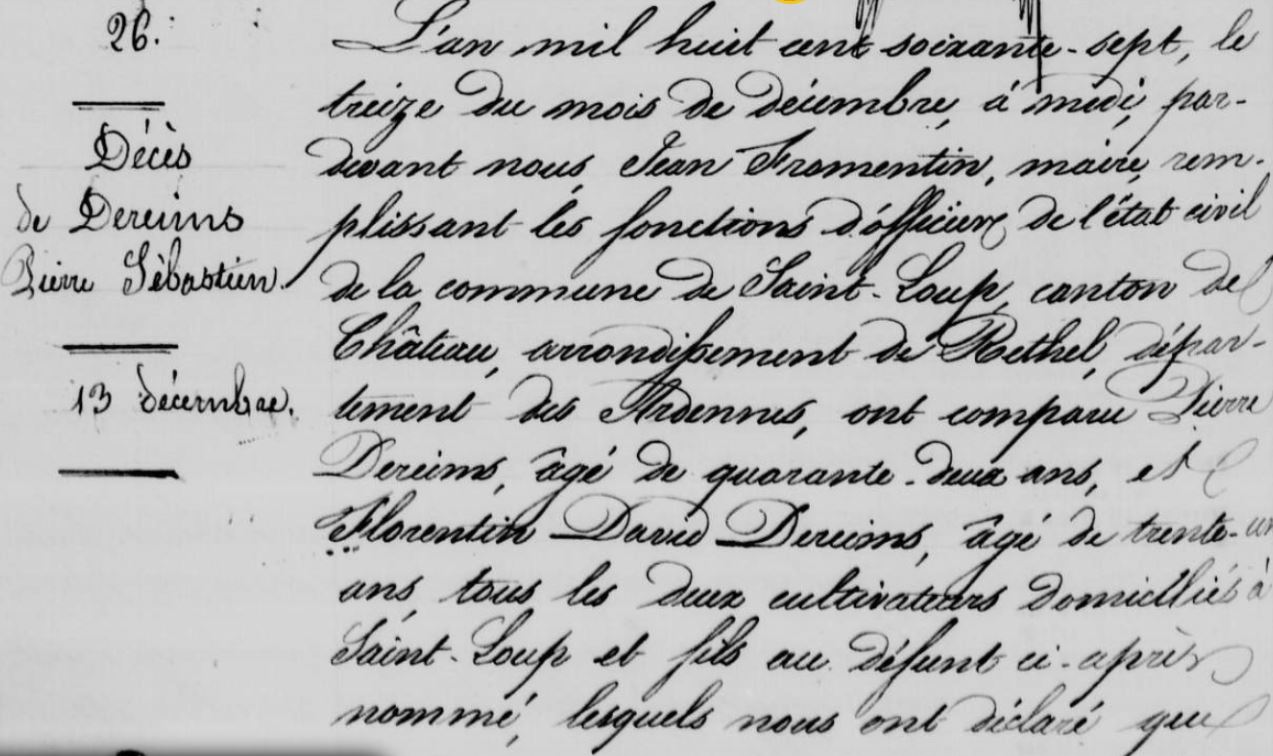 26.
Décès
de Dereims
Pierre Sébastien.
13 décembre.
L'an mil huit cent soixante-sept, le
treize du mois de décembre, à midi, par-
devant nous Jean Fromentin, maire, rem-
plissant les fonctions d'officier de l'état civil
de la commune de Saint-Loup, canton de
Château, arrondissement de Rethel, dépar-
tement des Ardennes, ont comparu Pierre
Dereims, âgé de quarante-deux ans, et
Florentin David Dereims, âgé de trente-un
ans, tous les deux cultivateurs domiciliés à
Saint-Loup et fils au défunt ci-après
nommé, lesquels nous ont déclaré que